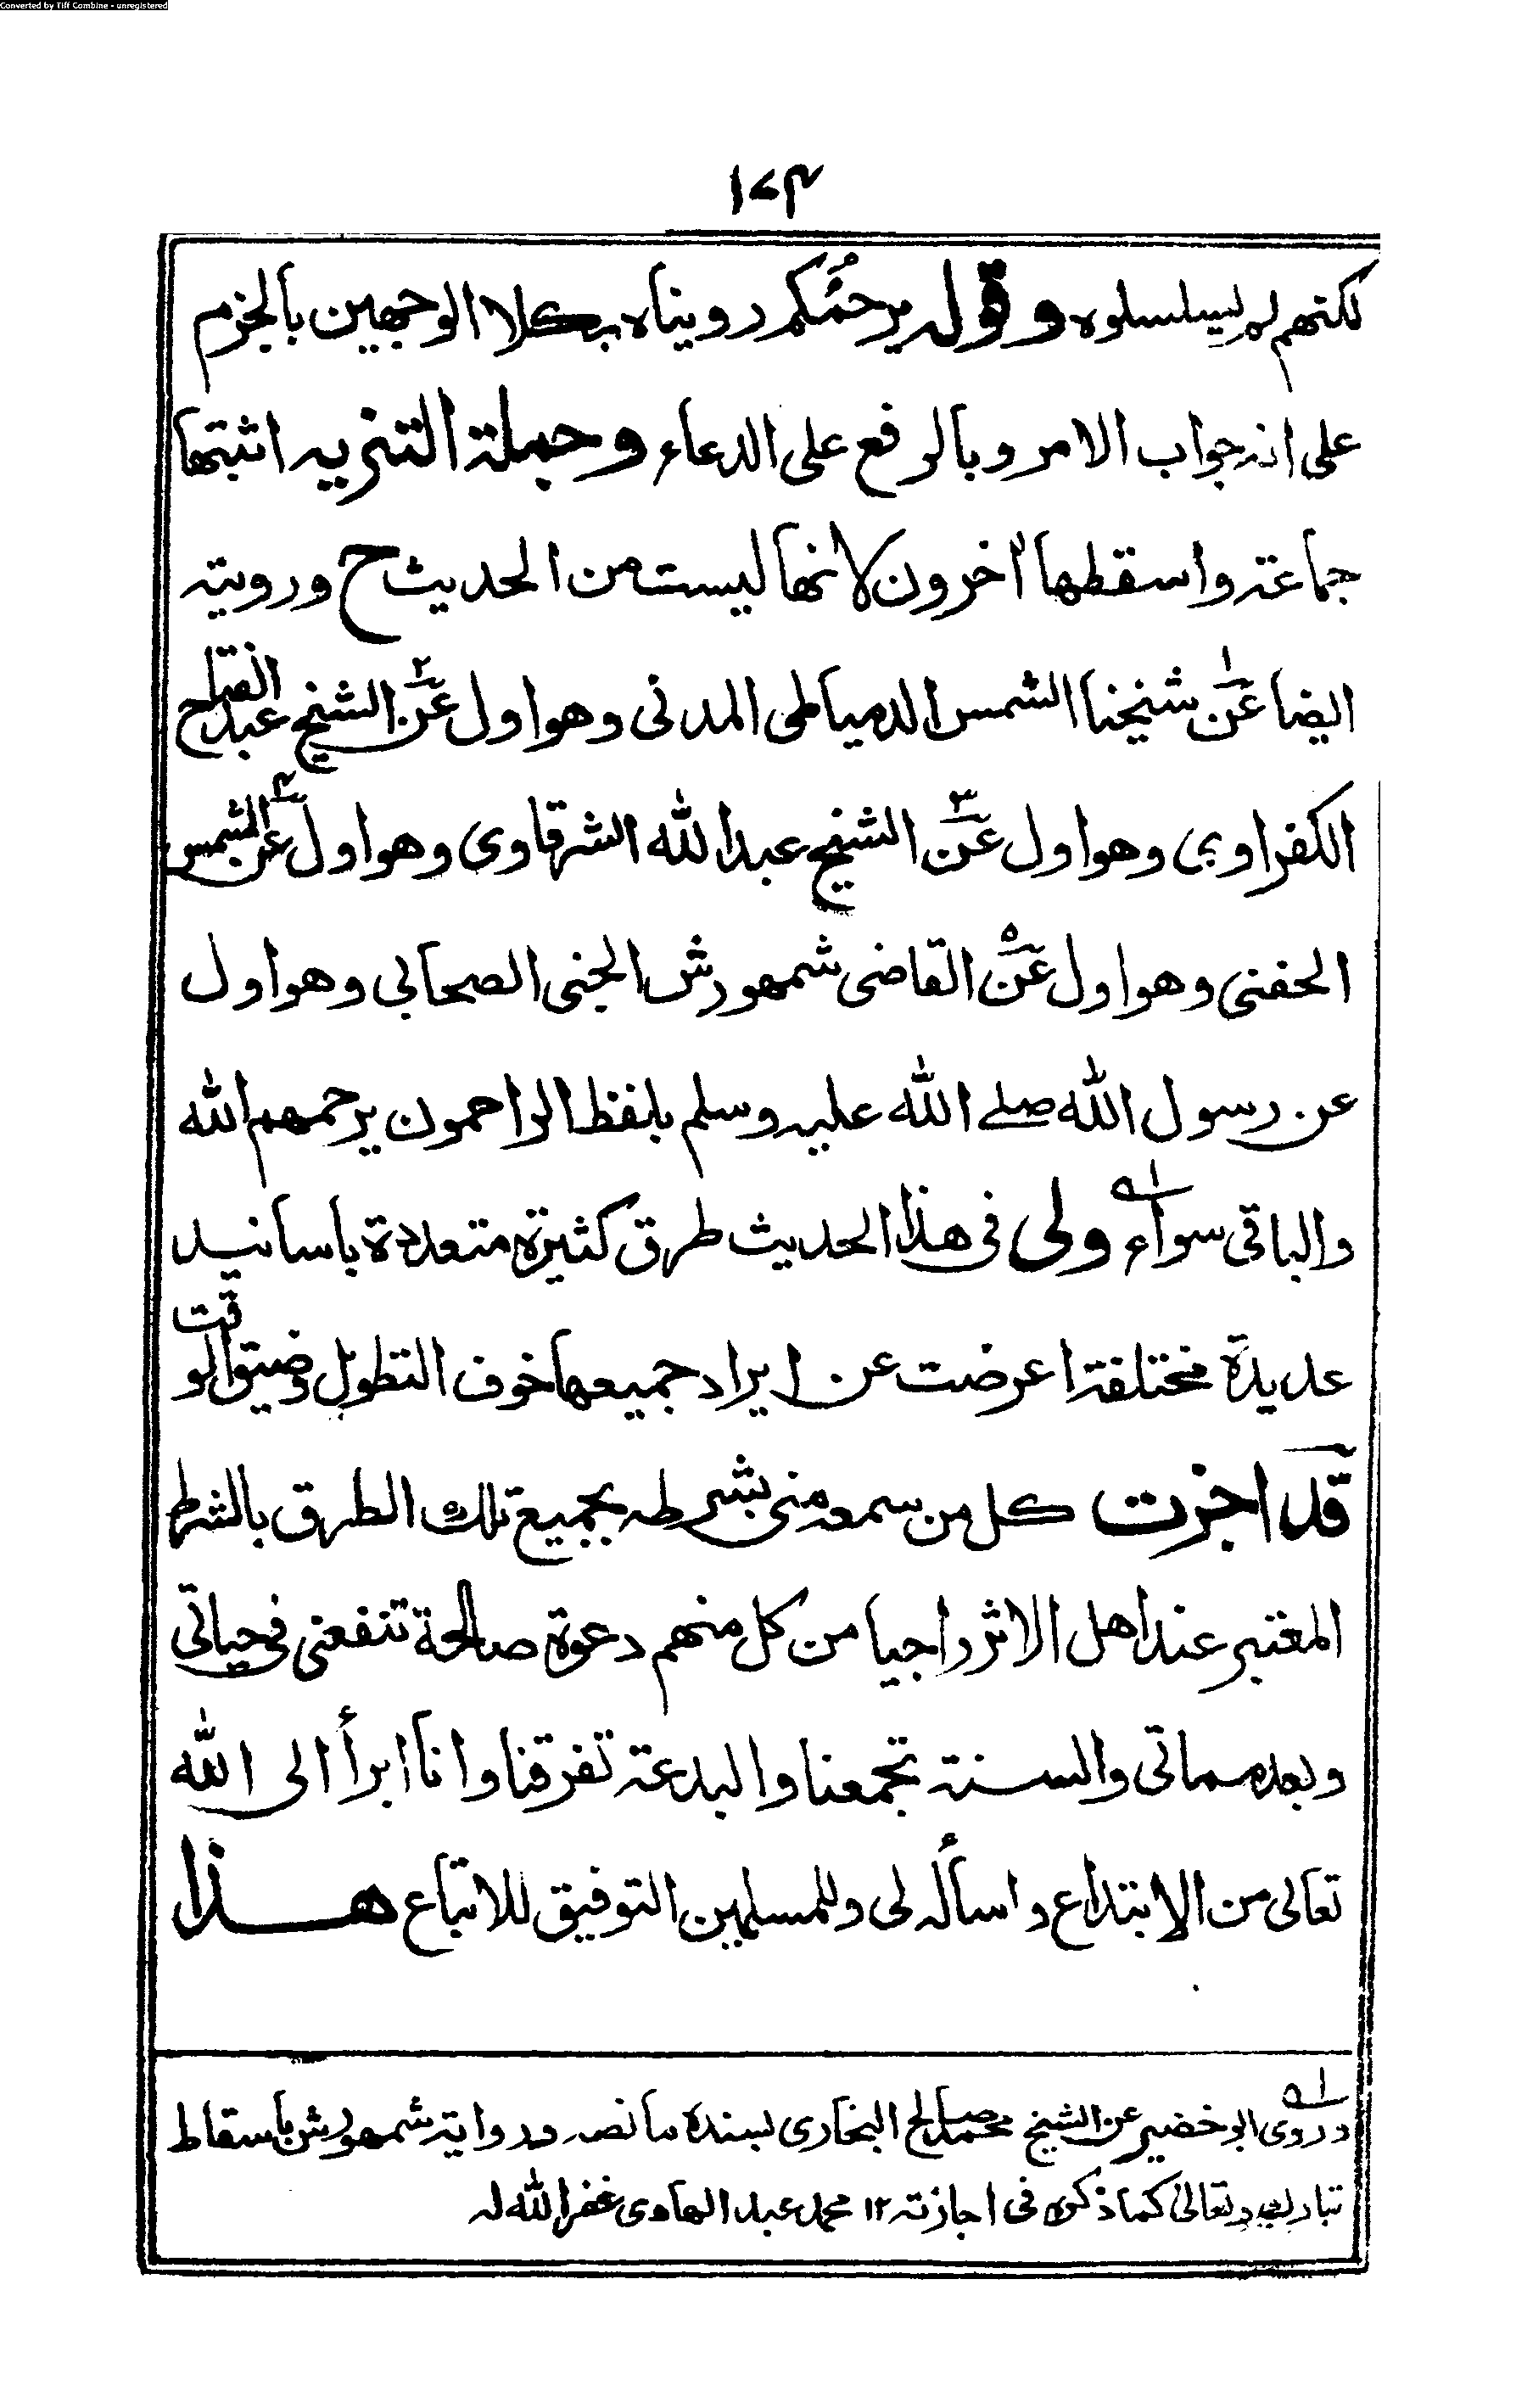 Converted by Tiff Combine - unregistered
١٧٤
لكنهم لم يسلسلوه وقوله يرحمُكم رويناه بكلا الوجهين بالجزم
على انه جواب الامر وبالرفع على الدعاء وجملة التنزيه اثبتها
جماعة واسقطها آخرون لانها ليست من الحديث ح ورويته
ايضا عن١ شيخنا الشمس الدمياطى المدنى وهو اول عن٢ الشيخ عبد الفتاح
الكفراوي وهو اول عن٣ الشيخ عبد الله الشرقاوى وهو اول عن٤ الشمس
الحفنى وهو اول عن٥ القاضى شمهورش الجنى الصحابى وهو اول
عن رسول الله صلے الله عليه وسلم بلفظ الراحمون يرحمهم الله
والباقى سواء١ه ولى فى هذا الحديث طرق كثيرة متعددة باسانيد
عديدة مختلفة اعرضت عن ايراد جميعها خوف التطويل وضيق الوقت
قد اجزت كل من سمعه منى بشرطه بجميع تلك الطرق بالشرط
المعتبر عند اهل الاثر راجيا من كل منهم دعوة صالحة تنفعنى فى حياتى
وبعد مماتى والسنة تجمعنا والبدعة تفرقنا وانا ابرأ الى الله
تعالى من الابتداع واسأله لى وللمسلمين التوفيق للاتباع هذا
١ه وروى ابو خضير عن الشيخ محمد صالح البخارى بسنده ما نصه ورواية شمهورش باسقاط
تبارك وتعالى كما ذكره فى اجازته ١٢ محمد عبد الهادى غفر الله له